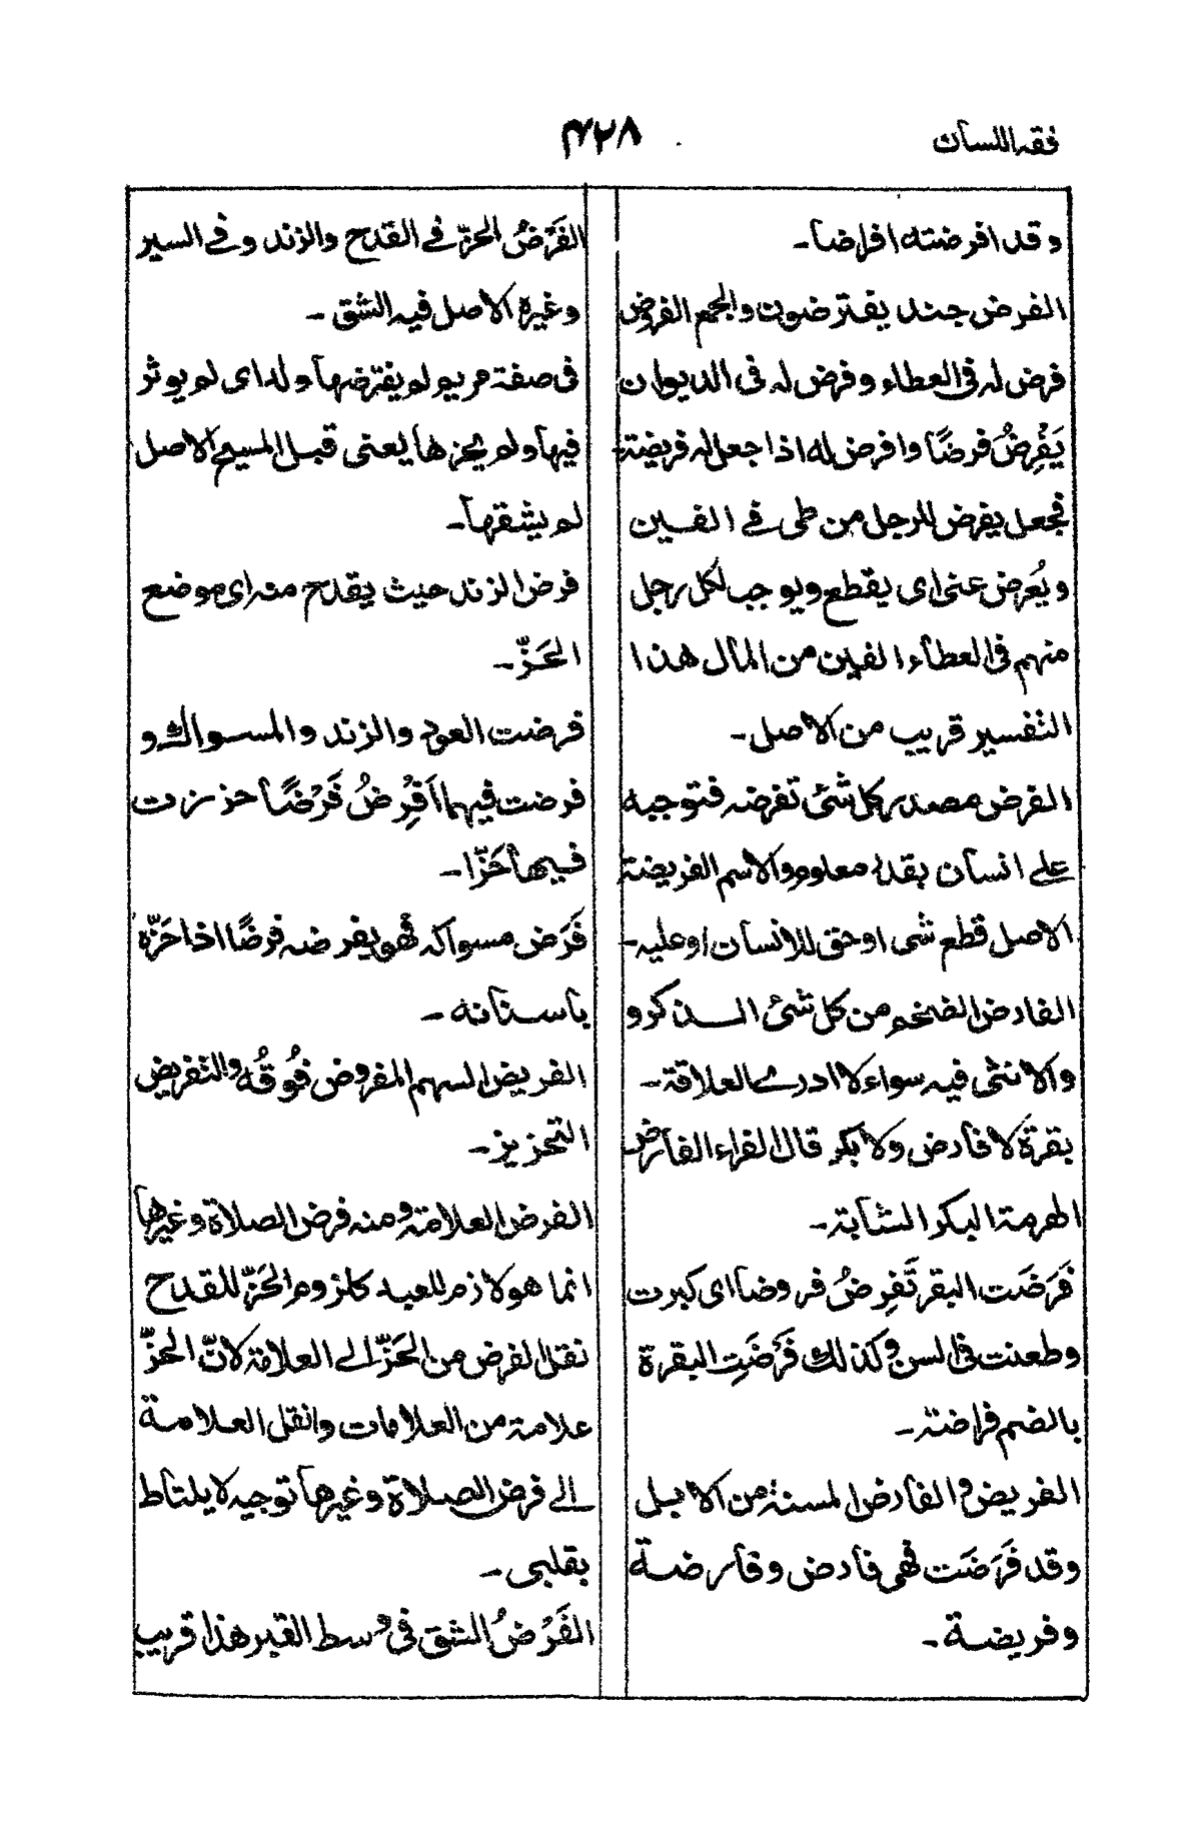 فقه اللسان
۴۲۸
وقد افرضته افراضا۔
الفرض جند يفترضون والجمع الفروض
فرض له في العطاء وفرض له في الديوان
يَفْرِضُ فرضًا وافرض له اذا جعل له فريضة
فجعل يفرض للرجل من طى في الفين
ويُعرض عنى اى يقطع ويوجب لكل رجل
منهم في العطاء الفين من المال هذا
التفسير قريب من الاصل۔
الفرض مصدر كل شئ تفرضه فتوجبه
على انسان بقدر معلوم والاسم الفريضة
الاصل قطع شى او حق للانسان او عليه۔
الفارض الضخم من كل شئ الذكر و
والانثى فيه سواء لا ادرى العلاقة۔
بقرة لا فارض ولا بكر قال الفراء الفارض
الهرمة البكر الشابة۔
فَرَضَت البقر تَفرِضُ فروضا اى كبرت
وطعنت في السن وكذلك فَرُضَتِ البقرة
بالضم فراضة۔
الفريض والفارض المسنة من الابل
وقد فَرَضَت فهى فارض وفارضة
وفريضة۔
الفَرْضُ الحزّ في القدح والزند وفي السير
وغيره الاصل فيه الشق۔
فى صفة مريم لم يفترضها ولد اى لم يوثر
فيها ولم يحزها يعنى قبل المسيح الاصل
لم يشقها۔
فرض الزند حيث يقدح منه اى موضع
الحَزّ۔
فرضت العود والزند والمسواك و
فرضت فيهما اَفْرِضُ فَرْضًا حززت
فيها حَزّا۔
فَرَض مسواكه فهو يفرضه فرضًا اذا حَزّه
باسنانه۔
الفريض السهم المفروض فُوقُه والتفريض
التحزيز۔
الفرض العلامة ومنه فرض الصلاة وغيرها
انما هو لازم للعبد كلزوم الحَزّ للقدح
نقل الفرض من الحَزّ الى العلامة لانّ الحزّ
علامة من العلامات وانقل العلامة
الى فرض الصلاة وغيرها توجيه لا يلتاط
بقلبى۔
الفَرْضُ الشق فى وسط القبر هذا قريب